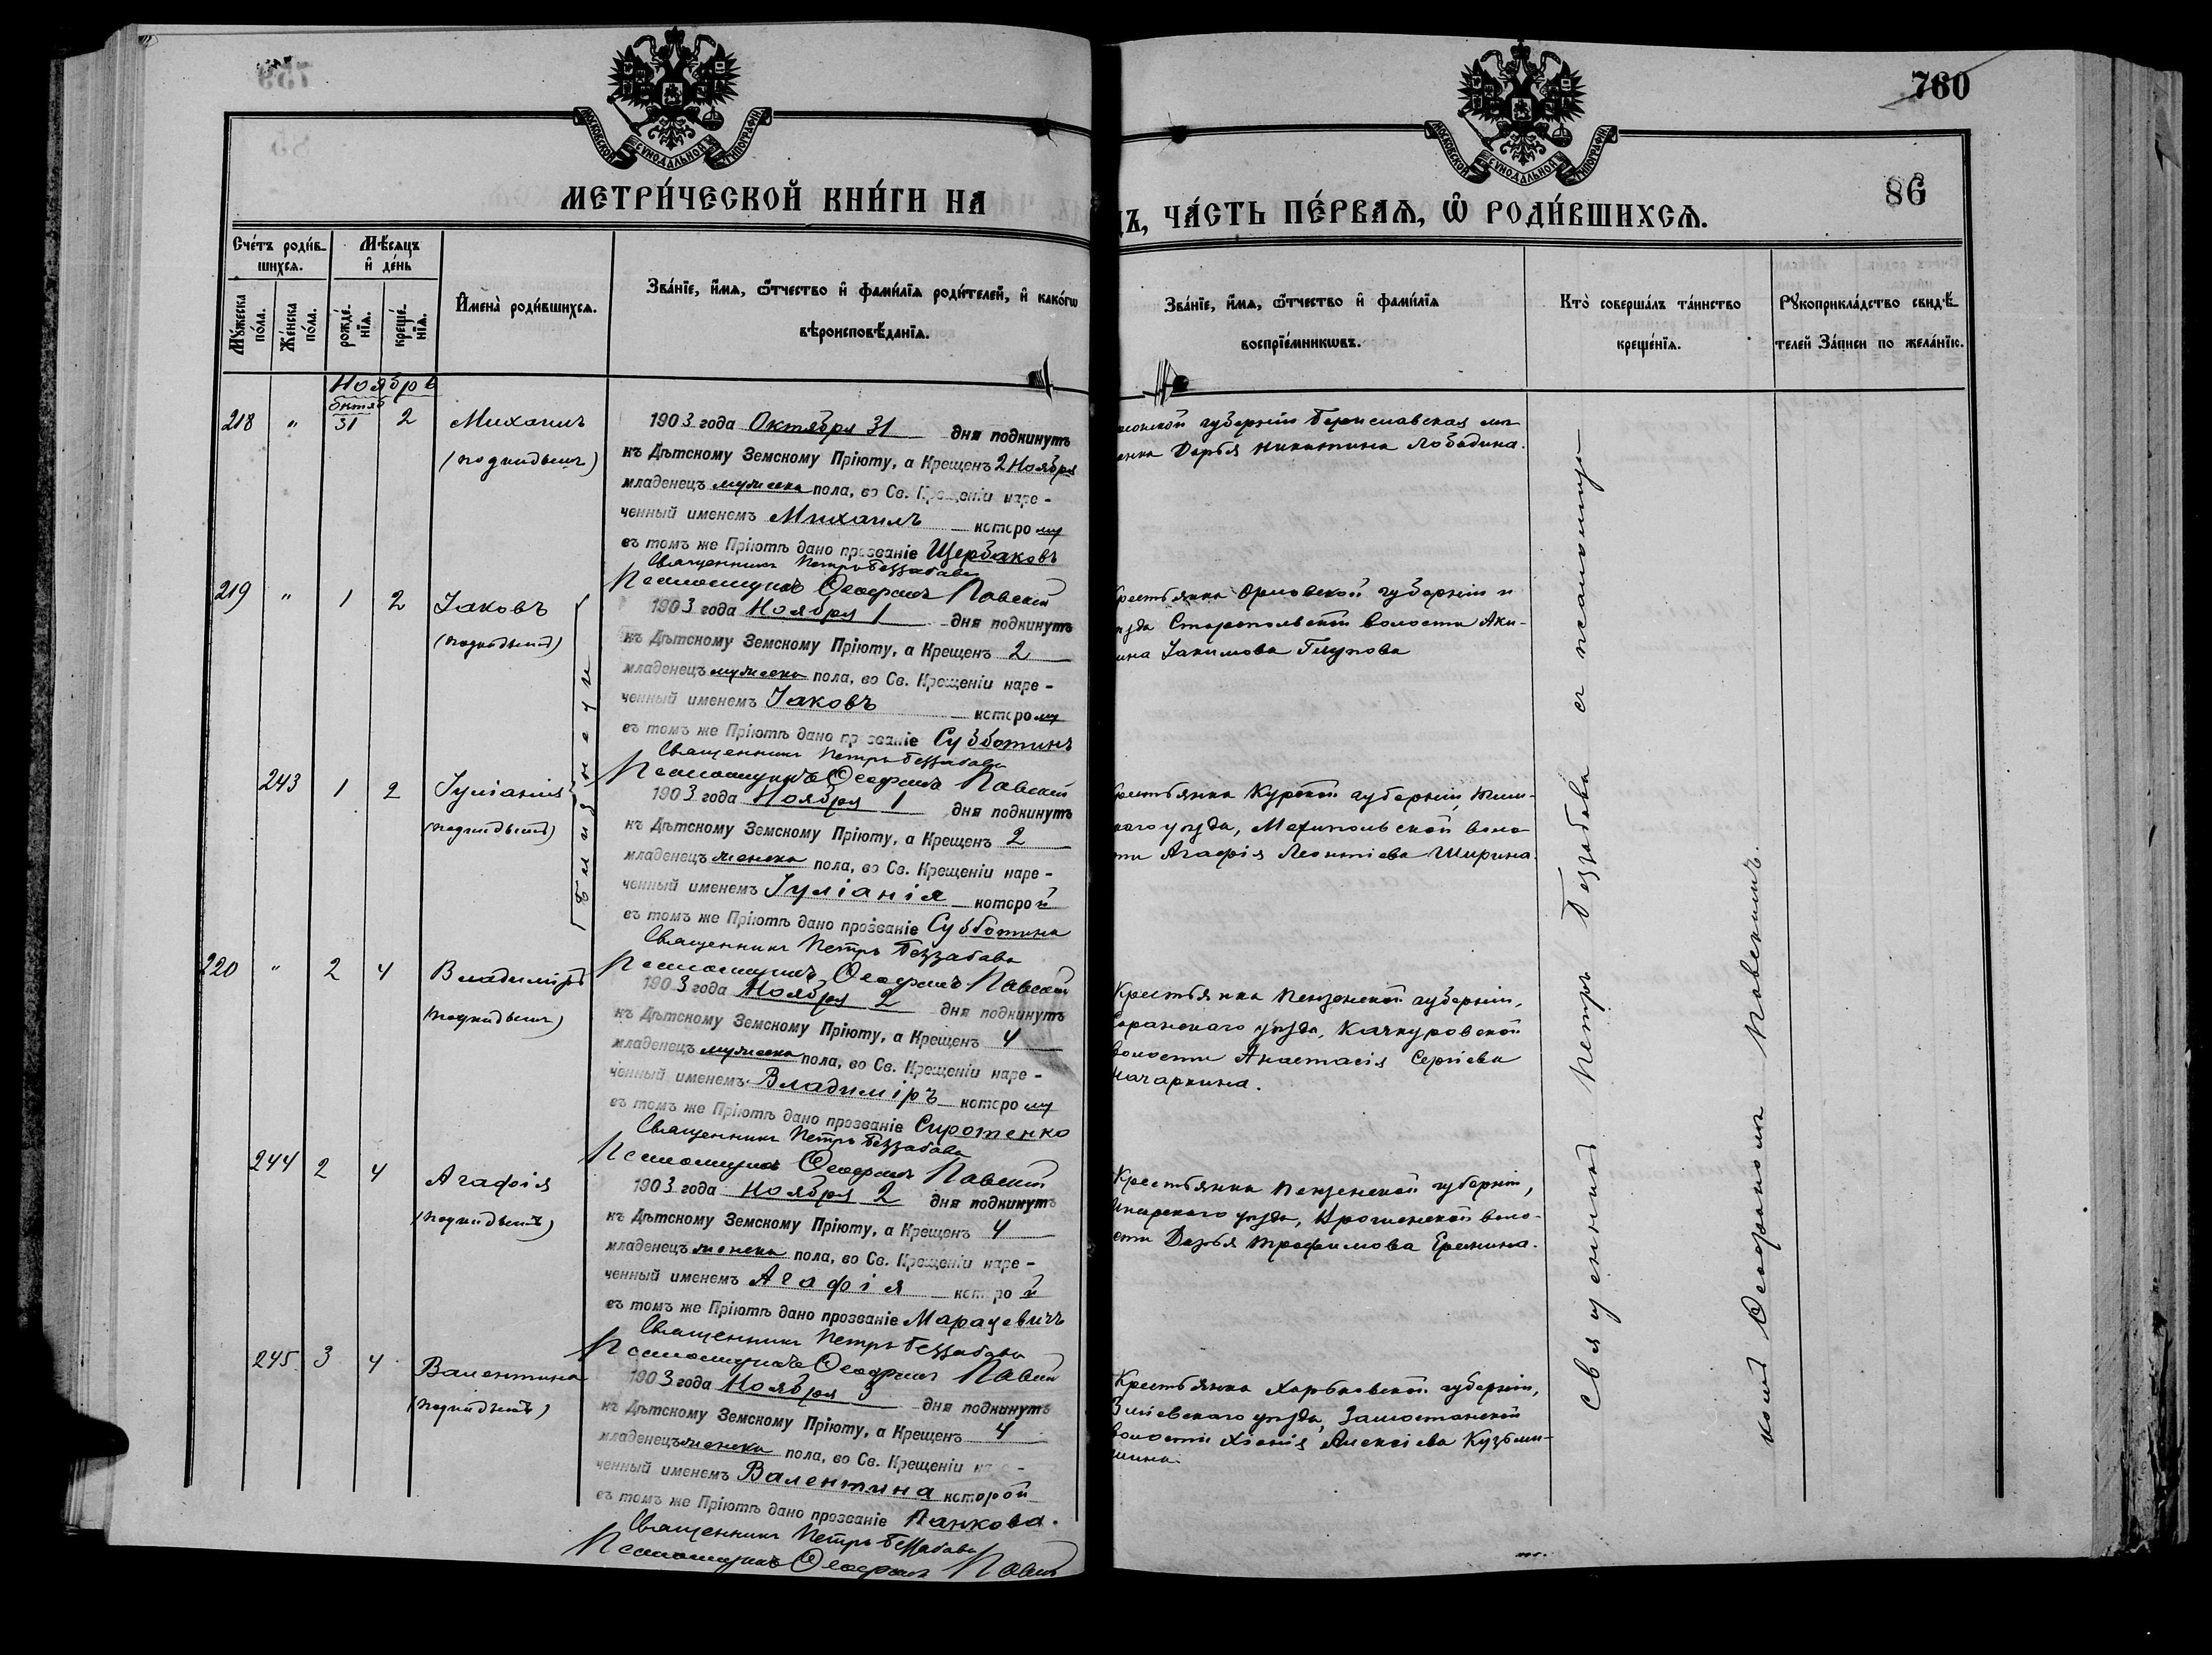 759
760
МОСКОВСКОЙ СУНОДАЛЬНОЙ ТИПОГРАФІИ
МОСКОВСКОЙ СУНОДАЛЬНОЙ ТИПОГРАФІИ
86
МЕТРИ́ЧЕСКОЙ КНИ́ГИ НА
ДЪ, ЧА́СТЬ ПЕ́РВАѦ, Ѡ҆ РОДИ́ВШИХСѦ.
Сче́тъ роди́в-
шихсѧ.
Мѣ́сѧцъ
и҆ де́нь
Мꙋжеска
по́ла.
Же́нска
по́ла.
рожде́-
нїѧ.
креще́-
нїѧ.
И҆мена̀ роди́вшихсѧ.
Зва́нїе, и҆́мѧ, ѻ҆́тчество и҆ фамилїѧ роди́телей, и҆ како́гѡ
вѣроисповѣ́данїѧ.
Зва́нїе, и҆́мѧ, ѻ҆́тчество и҆ фами́лїѧ
воспрїе́мникѡвъ.
Кто̀ соверша́лъ та́инство
креще́нїѧ.
Рꙋкоприкла́дство свидѣ́-
телей За́писи по жела́нїю.
Ноябрь
октяб
218 " 31 2 Михаилъ
(подкидышъ)
1903 года Октября 31 дня подкинутъ
къ Дѣтскому Земскому Пріюту, а Крещенъ 2 Ноября
младенецъ мужеска пола, во Св. Крещеніи наре-
ченный именемъ Михаилъ которому
въ томъ же Пріютѣ дано прозваніе Щербаковъ
Священникъ Петръ Беззабава
Псаломщикъ Ѳеофилъ Павскій
губерніи Бериславская
Дарья Никитина Лободина.
219 " 1 2 Іаковъ
(подкидышъ)
1903 года Ноября 1 дня подкинутъ
къ Дѣтскому Земскому Пріюту, а Крещенъ 2
младенецъ мужеска пола, во Св. Крещеніи наре-
ченный именемъ Іаковъ которому
въ томъ же Пріютѣ дано прозваніе Субботинъ
Священникъ Петръ Беззабава
Псаломщикъ Ѳеофилъ Павскій
Крестьянка Орловской губерніи и
уѣзда волости Аки-
лина Іакимова
Близнецы
243 1 2 Іуліанія
(подкидышъ)
1903 года Ноября 1 дня подкинутъ
къ Дѣтскому Земскому Пріюту, а Крещенъ 2
младенецъ женска пола, во Св. Крещеніи наре-
ченный именемъ Іуліанія которой
въ томъ же Пріютѣ дано прозваніе Субботина
Священникъ Петръ Беззабава
Псаломщикъ Ѳеофилъ Павскій
Крестьянка Курской губерніи, Тим-
скаго уѣзда, воло-
сти Агафія Леонтіева Ширина.
220 " 2 4 Владиміръ
(подкидышъ)
1903 года Ноября 2 дня подкинутъ
къ Дѣтскому Земскому Пріюту, а Крещенъ 4
младенецъ мужеска пола, во Св. Крещеніи наре-
ченный именемъ Владиміръ которому
въ томъ же Пріютѣ дано прозваніе Сиротенко
Священникъ Петръ Беззабава
Псаломщикъ Ѳеофилъ Павскій
Крестьянка Пензенской губерніи,
Саранскаго уѣзда, Качкуровской
волости Анастасія Сергіева
244 2 4 Агафія
(подкидышъ)
1903 года Ноября 2 дня подкинутъ
къ Дѣтскому Земскому Пріюту, а Крещенъ 4
младенецъ женска пола, во Св. Крещеніи наре-
ченный именемъ Агафія которой
въ томъ же Пріютѣ дано прозваніе Марацевичъ
Священникъ Петръ Беззабава
Псаломщикъ Ѳеофилъ Павскій
Крестьянка Пензенской губерніи,
Инсарскаго уѣзда, воло-
сти Дарья Трофимова Еремина.
245 3 4 Валентина
(подкидышъ)
1903 года Ноября 3 дня подкинутъ
къ Дѣтскому Земскому Пріюту, а Крещенъ 4
младенецъ женска пола, во Св. Крещеніи наре-
ченный именемъ Валентина которой
въ томъ же Пріютѣ дано прозваніе Панкова.
Священникъ Петръ Беззабава
Псаломщикъ Ѳеофилъ Павскій
Крестьянка Харьковской губерніи,
Зміевскаго уѣзда, Замостянской
волости Хіонія Алексіева Кузьми-
Священникъ Петръ Беззабава съ псаломщи-
комъ Ѳеофиломъ Павскимъ.